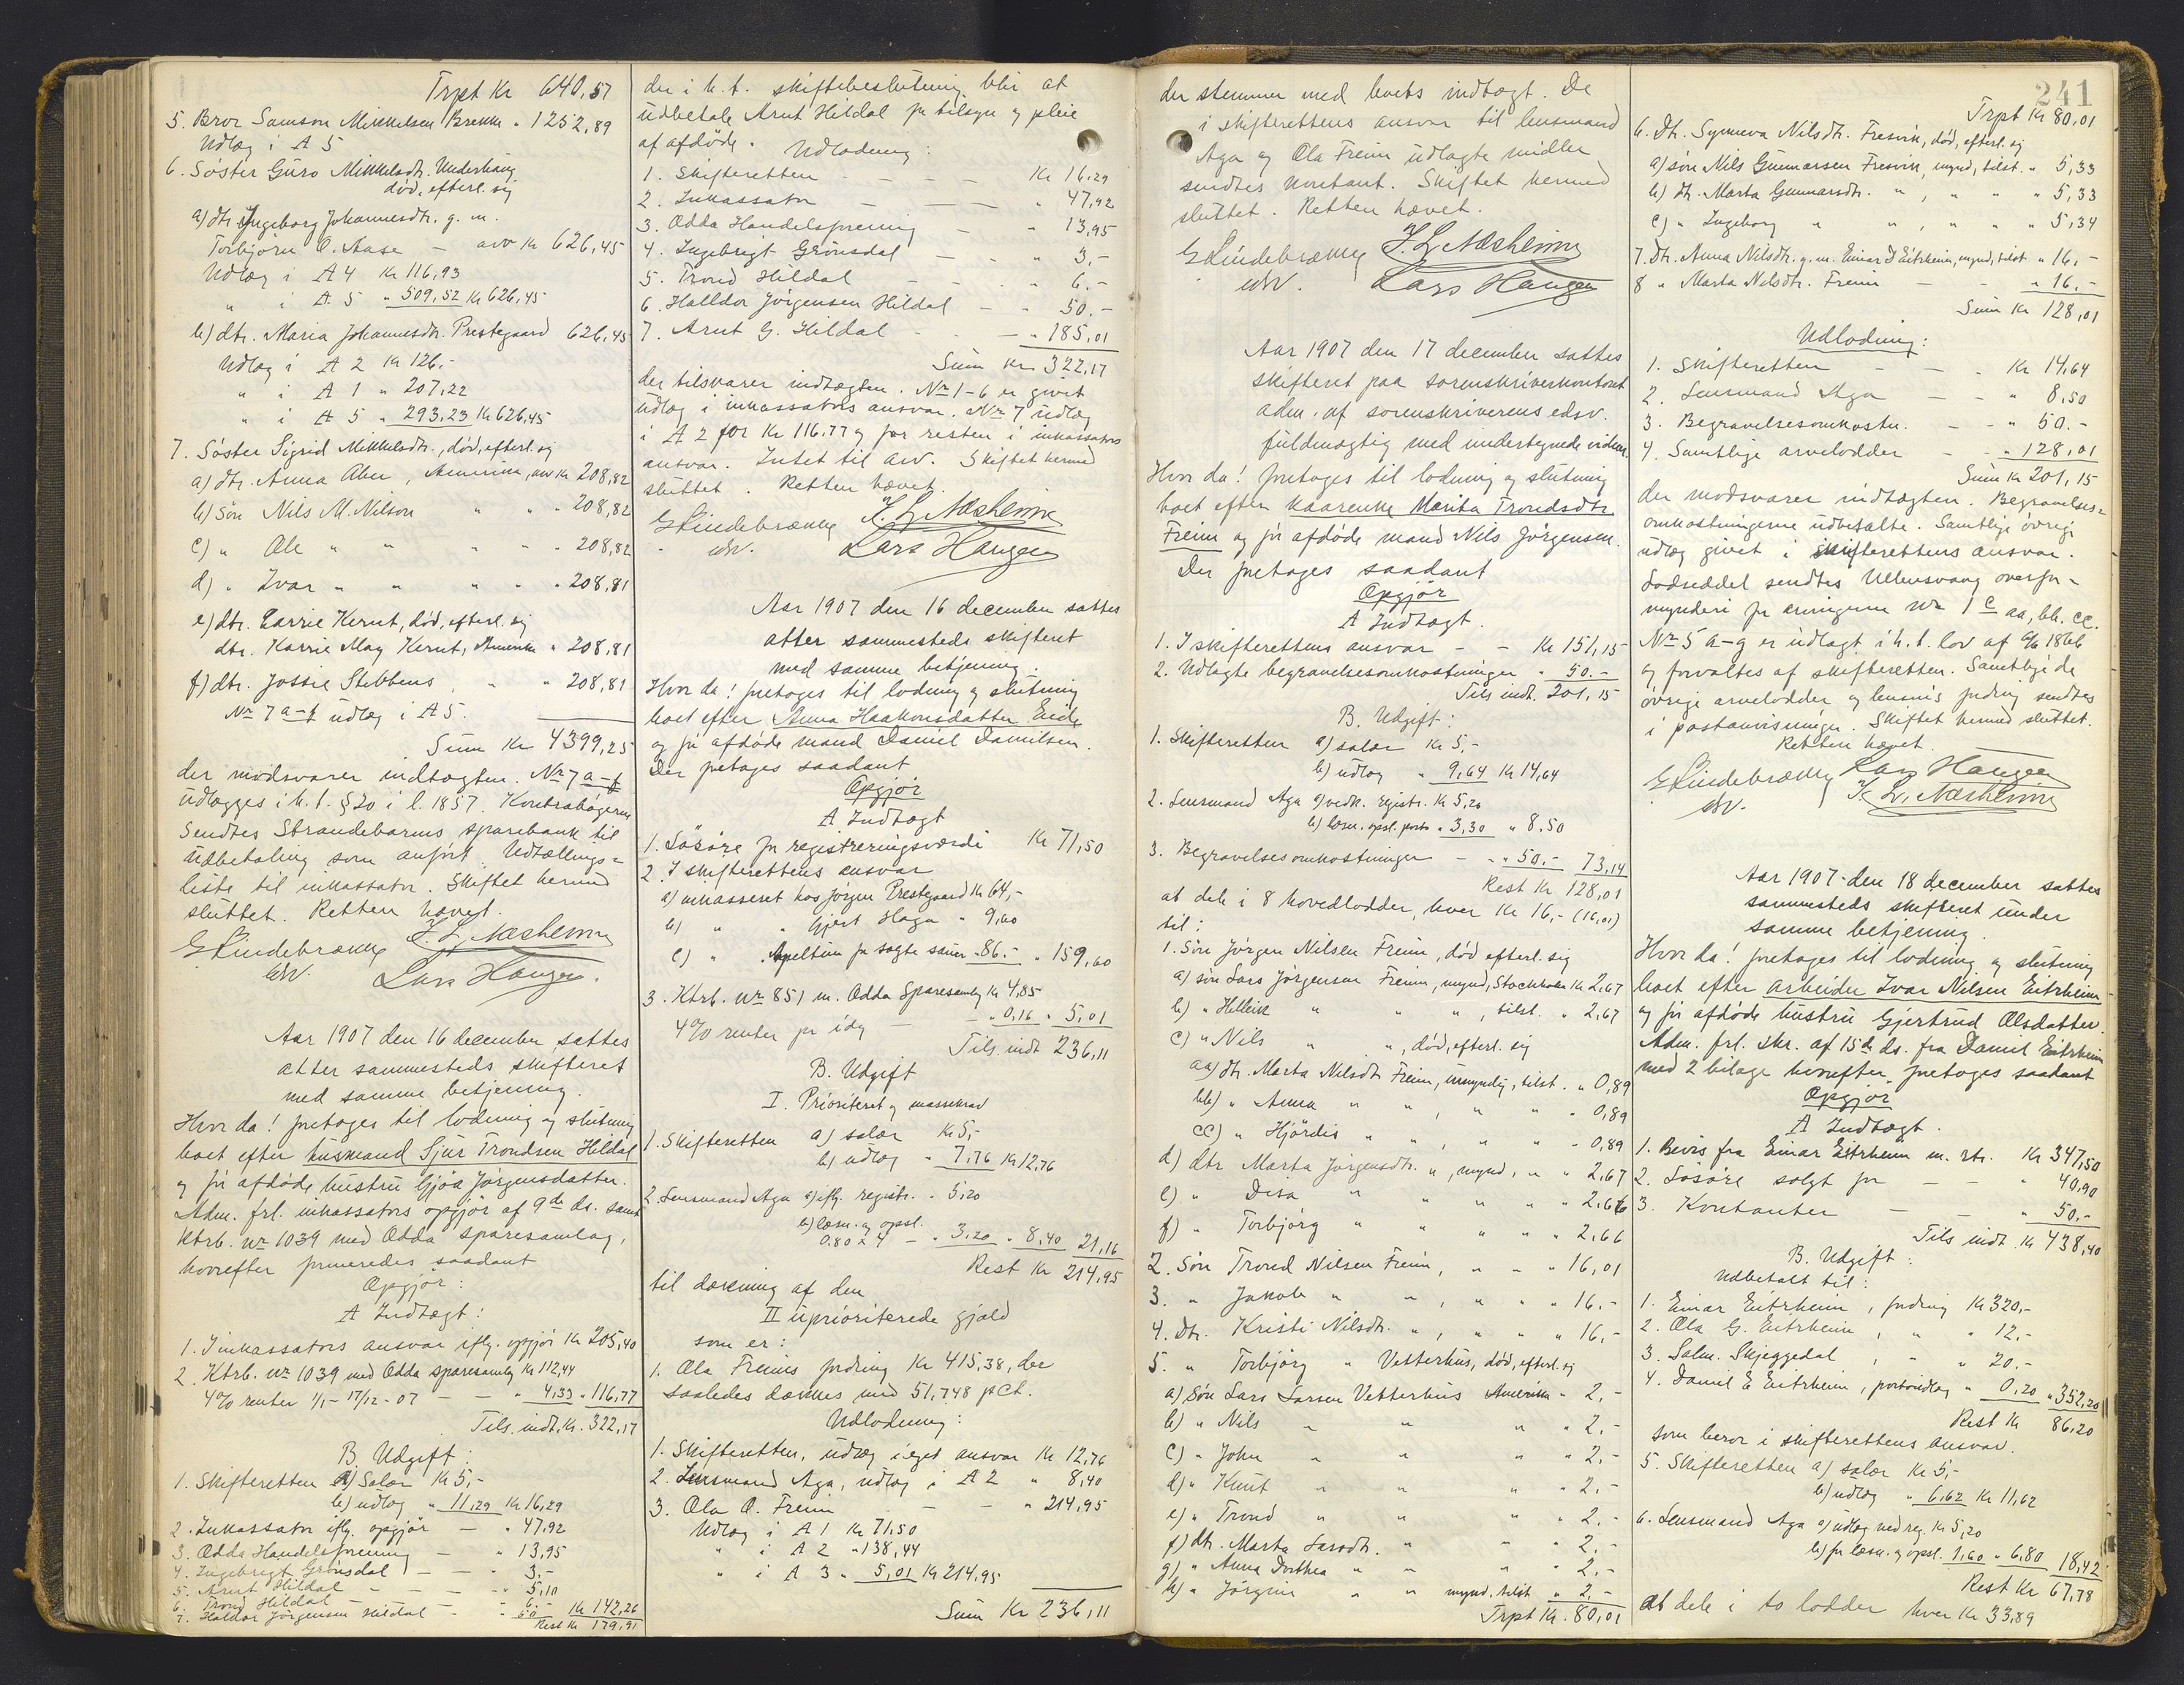 Trpt Kr 640,57
5. Bror Samson Mikkelsen Brekke " 1252,89
Udlæg i A 5
6. Søster Guro Mikkelsdtr. Underhaug
død, efterl. sig
a) dtr. Ingeborg Johannesdtr. g. m.
Torbjörn O. Aase — arv Kr 626,45
Udlæg i A 4 Kr 116,93
" i A 5 " 509,52 Kr 626,45
b) dtr. Maria Johannesdtr. Prestegaard 626,45
Udlæg i A 2 Kr 126,-
" i A 1 " 207,22
" i A 5 " 293,23 Kr 626,45
7. Søster Sigrid Mikkelsdtr., død, efterl. sig
a) dtr. Anna Aker, Amerika, arv Kr 208,82
b) Søn Nils M. Nilson " " " 208,82
c) " Ole " " " " " 208,82
d) " Ivar " " " " " 208,81
e) dtr. Carrie Kernt, død, efterl. sig
dtr. Karrie May Kernt, Amerika " 208,81
f) dtr. Jossie Stebbens, " " 208,81
Nr 7 a-f udlæg i A 5.
Sum Kr 4399,25
der modsvarer indtægten. Nr 7 a-f
udlægges i h. t. § 20 i l. 1857. Kontrabøgerne
sendtes Strandebarms sparebank til
udbetaling som anført. Udtællings-
liste til inkassator. Skiftet hermed
sluttet. Retten hævet.
G Lindebrække K. L. Næsheim
edsv. Lars Haugen.
Aar 1907 den 16 december sattes
atter sammesteds skifteret
med samme betjening.
Hvor da! foretoges til lodning og slutning
boet efter husmand Sjur Trondsen Hildal
og før afdøde hustru Gjøa Jørgensdatter.
Adm. frl. inkassators opgjør af 9de ds. samt
Ktrb. nr 1039 med Odda sparesamlag,
hvorefter foretoges saadant
Opgjør:
A Indtægt:
1. I inkassators ansvar iflg. opgjør Kr 205,40
2. Ktrb. nr 1039 med Odda sparesamlag Kr 112,44
4% renter 1/1 - 17/12 - 07 — " 4,33 " 116,77
Tils. indt. Kr. 322,17
B. Udgift:
1. Skifteretten a) Salær Kr 5,-
b) udlæg " 11,29 Kr 16,29
2. Inkassator iflg. opgjør — " 47,92
3. Odda Handelsforening — " 13,95
4. Ingebrigt Grønsdal — " 3,-
5. Arnt Hildal — " 5,10
6. Trond Hildal — " 6.-
7. Haldor Jørgensen Hildal " 50 Kr 142,26
Rest Kr 179,91
der i h. t. skiftebeslutning blir at
udbetale Arnt Hildal for tilsyn og pleie
af afdøde. Udlodning:
1. Skifteretten — Kr 16,29
2. Inkassator — " 47,92
3. Odda Handelsforening — " 13,95
4. Ingebrigt Grønsdal — " 3,-
5. Trond Hildal — " 6.-
6. Halldor Jørgensen Hildal — " 50.-
7. Arnt G. Hildal — " 185,01
Sum Kr 322,17
der tilsvarer indtægten. Nr 1-6 er givet
udlæg i inkassators ansvar. Nr 7 udlæg
i A 2 for Kr 116.77 og for resten i inkassators
ansvar. Intet til arv. Skiftet hermed
sluttet. Retten hævet.
G Lindebrække K. L. Næsheim
edsv. Lars Haugen
Aar 1907 den 16 december sattes
atter sammesteds skifteret
med samme betjening.
Hvor da! foretoges til lodning og slutning
boet efter Anna Haakonsdatter Eide
og før afdøde mand Daniel Danielsen.
Der foretoges saadant
Opgjør
A Indtægt
1. Løsøre for registreringsværdi Kr 71,50
2. I skifterettens ansvar
a) inkasseret hos Jørgen Prestegaard Kr 64,-
b) " " Gjert Haga " 9,60
c) " Apeltun for solgte sauer " 86.- " 159,60
3. Ktrb. nr 851 m. Odda Sparesamlag Kr 4,85
4% renter pr idag — " 0,16 " 5,01
Tils. indt 236,11
B. Udgift
I. Prioriteret og massekrav
1. Skifteretten a) salær Kr 5,-
b) udlæg " 7,76 Kr 12,76
2. Lensmand Aga a) iflg. registr. " 5,20
b) læsn. og opsl.
0.80 x 4 — " 3,20 " 8,40 21,16
Rest Kr 214,95
til dækning af den
II uprioriterede gjæld
som er:
1. Ola Freims fordring Kr 415,38, der
saaledes dækkes med 51,748 pCt.
Udlodning:
1. Skifteretten, udlæg i eget ansvar Kr 12,76
2. Lensmand Aga, udlæg i A 2 " 8,40
3. Ola O. Freim — " 214,95
Udlæg i A 1 Kr 71,50
" i A 2 " 138,44
" i A 3 " 5,01 Kr 214,95
Sum Kr 236,11
der stemmer med boets indtægt. De
i skifterettens ansvar til lensmand
Aga og Ola Freim udlagte midler
sendtes kontant. Skiftet hermed
sluttet. Retten hævet.
G Lindebrække K. L. Næsheim
edsv. Lars Haugen
Aar 1907 den 17 december sattes
skifteret paa sorenskriverkontoret
adm. af sorenskriverens edsv.
fuldmægtig med undertegnede vidner.
Hvor da! foretoges til lodning og slutning
boet efter kaarenke Marita Trondsdtr
Freim og før afdøde mand Nils Jørgensen.
Der foretoges saadant
Opgjør
A Indtægt.
1. I skifterettens ansvar — Kr 151,15
2. Udlagte begravelsesomkostninger " 50.-
Tils indt. 201,15
B. Udgift:
1. Skifteretten a) salær Kr 5,-
b) udlæg " 9,64 Kr 14,64
2. Lensmand Aga a) vedk. registr. Kr 5,20
b) læsn. opsl. porto " 3,30 " 8.50
3. Begravelsesomkostninger — " 50.- 73,14
Rest Kr 128,01
at dele i 8 hovedlodder, hver Kr 16,- (16,01)
til:
1. Søn Jørgen Nilsen Freim, død efterl. sig
a) søn Lars Jørgensen Freim, mynd, Stockholm Kr 2,67
b) " Helleik " " ", tilst. " 2,67
c) " Nils " ", død, efterl. sig
aa) dtr. Marta Nilsdtr. Freim, umyndig, tilst. " 0,89
bb) " Anna " ", " " " 0,89
cc) " Hjørdis " ", " " " 0,89
d) dtr Marta Jørgensdtr. ", mynd, " " 2,67
e) " Disa " " " " " 2,66
f) " Torbjørg " " " " " 2,66
2. Søn Trond Nilsen Freim, " " " 16,01
3. " Jakob " ", " " " 16.-
4. Dtr. Kristi Nilsdtr. ", " " " 16,-
5. " Torbjørg " Vetterhus, død, efterl. sig
a) Søn Lars Larsen Vetterhus Amerika " 2,-
b) " Nils " " " " 2.-
c) " John " " " " 2.-
d) " Knut " " " " 2.-
e) " Trond " " " " 2.-
f) dtr. Marta Larsdtr. " " " 2.-
g) " Anna Dorthea " " " " 2.-
h) " Jørgine " " mynd. tilst " 2,-
Trpt Kr. 80,01
241
Trpt Kr 80,01
6. Dtr. Synneva Nilsdtr. Fresvik, død, efterl. sig
a) søn Nils Gunnarsen Fresvik, mynd, tilst. " 5,33
b) dtr. Marta Gunnarsdtr. ", " " " 5,33
c) " Ingeborg " ", " " " 5,34
7. Dtr. Anna Nilsdtr. g. m. Einar D Eitrheim, mynd, tilst " 16,-
8 " Marta Nilsdtr. Freim — " 16.-
Sum Kr 128,01
Udlodning:
1. Skifteretten — Kr 14,64
2. Lensmand Aga — " 8,50
3. Begravelsesomkostn. — " 50.-
4. Samtlige arvelodder — " 128,01
Sum Kr 201,15
der modsvarer indtægten. Begravelses-
omkostningerne udbetalte. Samtlige øvrige
udlæg givet i skifterettens ansvar.
Lodseddel sendtes Ullensvang overfor-
mynderi for arvingerne nr 1 c aa, bb. cc.
Nr 5 a-g er udlagt i h. t. lov af 1866
og forvaltes af skifteretten. Samtlige de
øvrige arvelodder og lensm's fordring sendtes
i postanvisninger. Skiftet hermed sluttet.
Retten hævet.
G Lindebrække Lars Haugen
edsv. K. L. Næsheim
Aar 1907 den 18 december sattes
sammesteds skifteret under
samme betjening.
Hvor da! foretoges til lodning og slutning
boet efter arbeider Ivar Nilsen Eitrheim
og før afdøde hustru Gjertrud Olsdatter.
Adm. frl. skr. af 15de ds. fra Daniel Eitrheim
med 2 bilage hvorefter foretoges saadant
Opgjør
A Indtægt.
1. Bevis fra Einar Eitrheim m. rtr. Kr 347,50
2. Løsøre solgt for — " 40,90
3. Kontanter — " 50.-
Tils indt. Kr 438,40
B. Udgift:
Udbetalt til:
1. Einar Eitrheim, fordring Kr 320,-
2. Ola G. Eitrheim, " " 12.-
3. Salm. Skjeggedal, " " 20.-
4. Daniel E Eitrheim, portoudlæg " 0,20 " 352,20
Rest Kr 86,20
som beror i skifterettens ansvar.
5. Skifteretten a) salær Kr 5,-
b) udlæg " 6,62 Kr 11,62
6. Lensmand Aga a) udlæg ved reg. Kr 5,20
b) for læsn. og opsl. 1,60 " 6,80 18,42
Rest Kr 67,78
at dele i to lodder hver Kr 33,89